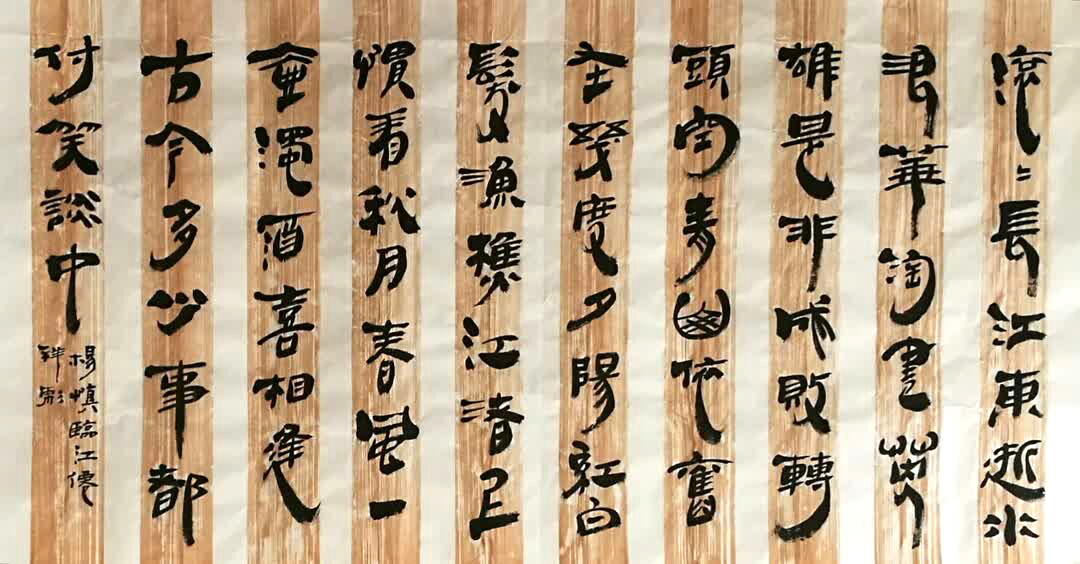 滚〻長江東逝水
浪華淘盡英
雄是非成敗轉
頭空青山依舊
在幾度夕陽紅白
髮漁樵江渚上
慣看秋月春風一
壺濁酒喜相逢
古今多少事都
付笑談中
楊慎臨江僊